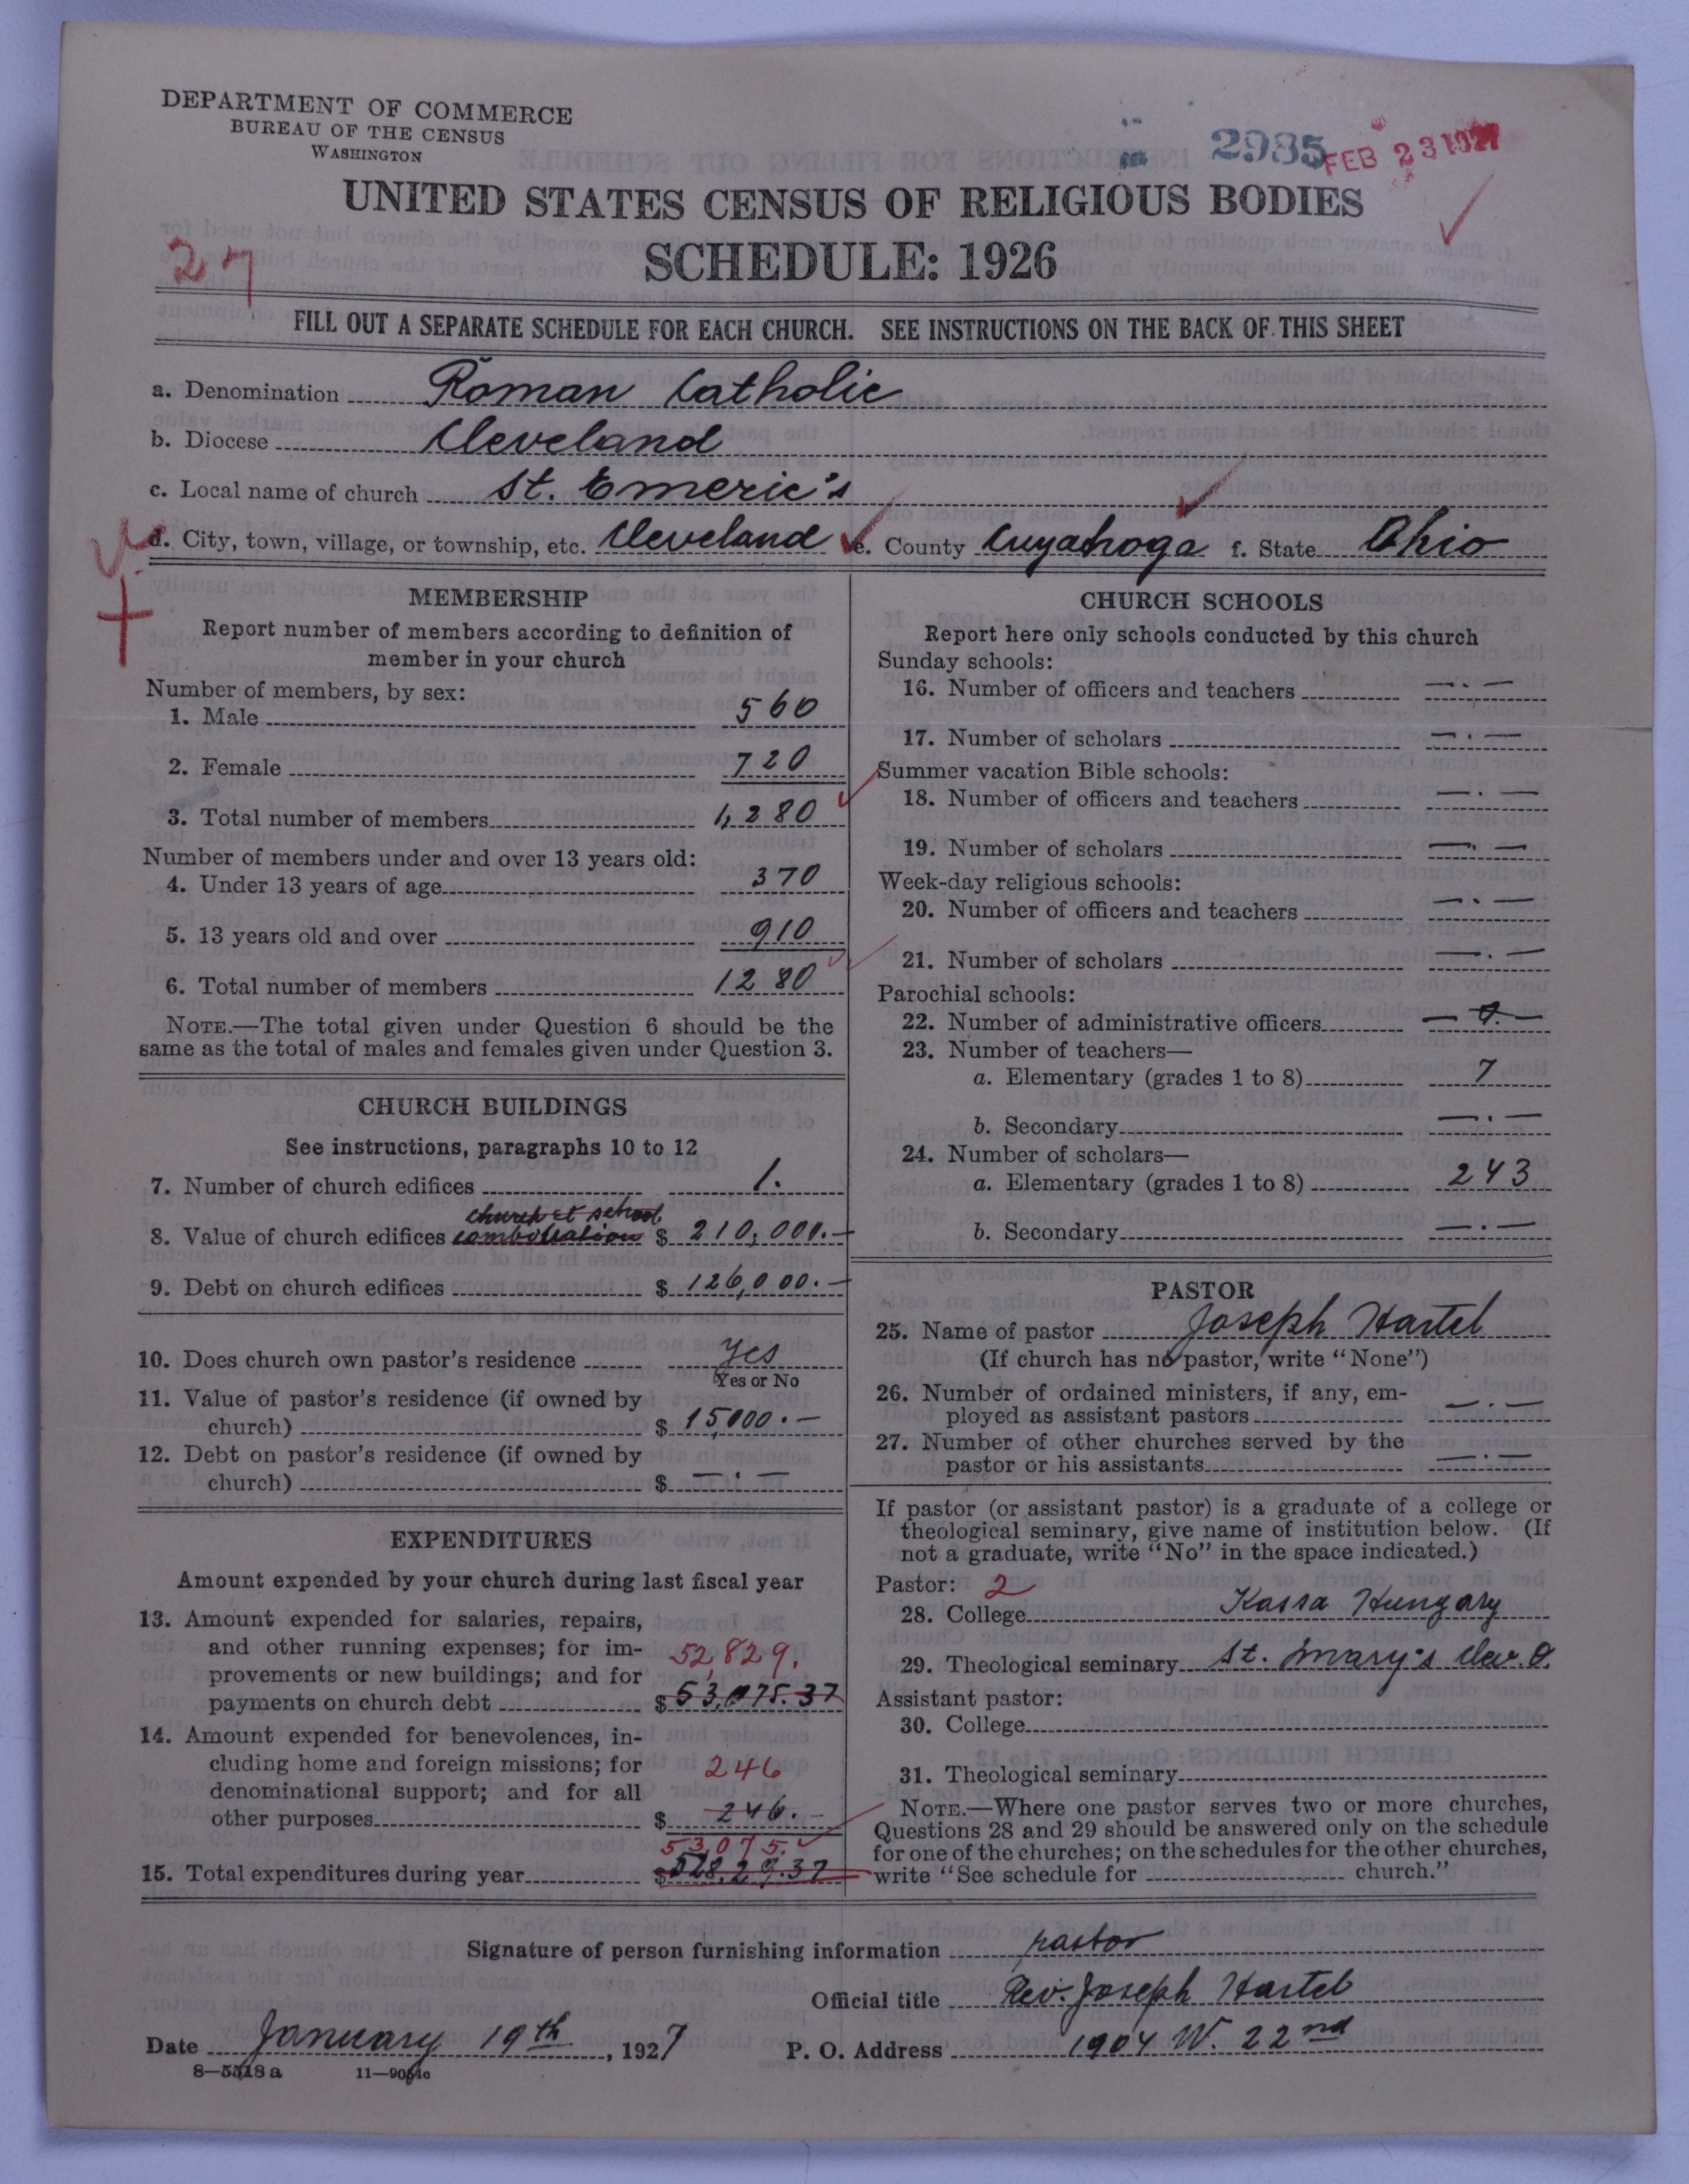 DEPARTMENT OF COMMERCE
BUREAU OF THE CENSUS
WASHINGTON
2985 FEB 23 1927
UNITED STATES CENSUS OF RELIGIOUS BODIES
27
SCHEDULE: 1926
FILL OUT A SEPARATE SCHEDULE FOR EACH CHURCH. SEE INSTRUCTIONS ON THE BACK OF THIS SHEET
a. Denomination Roman Catholic
b. Diocese Cleveland
c. Local name of church St. Emeric's
d. City, town, village, or township, etc. Cleveland e. County Cuyahoga f. State Ohio
MEMBERSHIP
Report number of members according to definition of
member in your church
Number of members, by sex:
1. Male 560
2. Female 720
3. Total number of members 1,280
Number of members under and over 13 years old:
4. Under 13 years of age 370
5. 13 years old and over 910
6. Total number of members 1280
NOTE.—The total given under Question 6 should be the
same as the total of males and females given under Question 3.
CHURCH BUILDINGS
See instructions, paragraphs 10 to 12
7. Number of church edifices 1.
church et school
8. Value of church edifices combination $ 210,000.—
9. Debt on church edifices $ 126,000.—
10. Does church own pastor's residence yes
Yes or No
11. Value of pastor's residence (if owned by
church) $ 15,000.—
12. Debt on pastor's residence (if owned by
church) $ —.—
EXPENDITURES
Amount expended by your church during last fiscal year
13. Amount expended for salaries, repairs,
and other running expenses; for im-
52,829.
provements or new buildings; and for
payments on church debt $ 53,075.37
14. Amount expended for benevolences, in-
cluding home and foreign missions; for 246
denominational support; and for all
other purposes $ 246.—
53,075.
15. Total expenditures during year $ 528,29.37
CHURCH SCHOOLS
Report here only schools conducted by this church
Sunday schools:
16. Number of officers and teachers —.—
17. Number of scholars —.—
Summer vacation Bible schools:
18. Number of officers and teachers —.—
19. Number of scholars —.—
Week-day religious schools:
20. Number of officers and teachers —.—
21. Number of scholars —.—
Parochial schools:
22. Number of administrative officers —.—
23. Number of teachers—
a. Elementary (grades 1 to 8) 7
b. Secondary —.—
24. Number of scholars—
a. Elementary (grades 1 to 8) 243
b. Secondary —.—
PASTOR
25. Name of pastor Joseph Hartel
(If church has no pastor, write "None")
26. Number of ordained ministers, if any, em-
ployed as assistant pastors —.—
27. Number of other churches served by the
pastor or his assistants —.—
If pastor (or assistant pastor) is a graduate of a college or
theological seminary, give name of institution below. (If
not a graduate, write "No" in the space indicated.)
Pastor: 2
28. College Kassa Hungary
29. Theological seminary St. Mary's Clev. O.
Assistant pastor:
30. College
31. Theological seminary
NOTE.—Where one pastor serves two or more churches,
Questions 28 and 29 should be answered only on the schedule
for one of the churches; on the schedules for the other churches,
write "See schedule for church."
Signature of person furnishing information pastor
Official title Rev. Joseph Hartel
Date January 19th, 1927 P. O. Address 1904 W. 22nd
8—5518 a 11—9054c